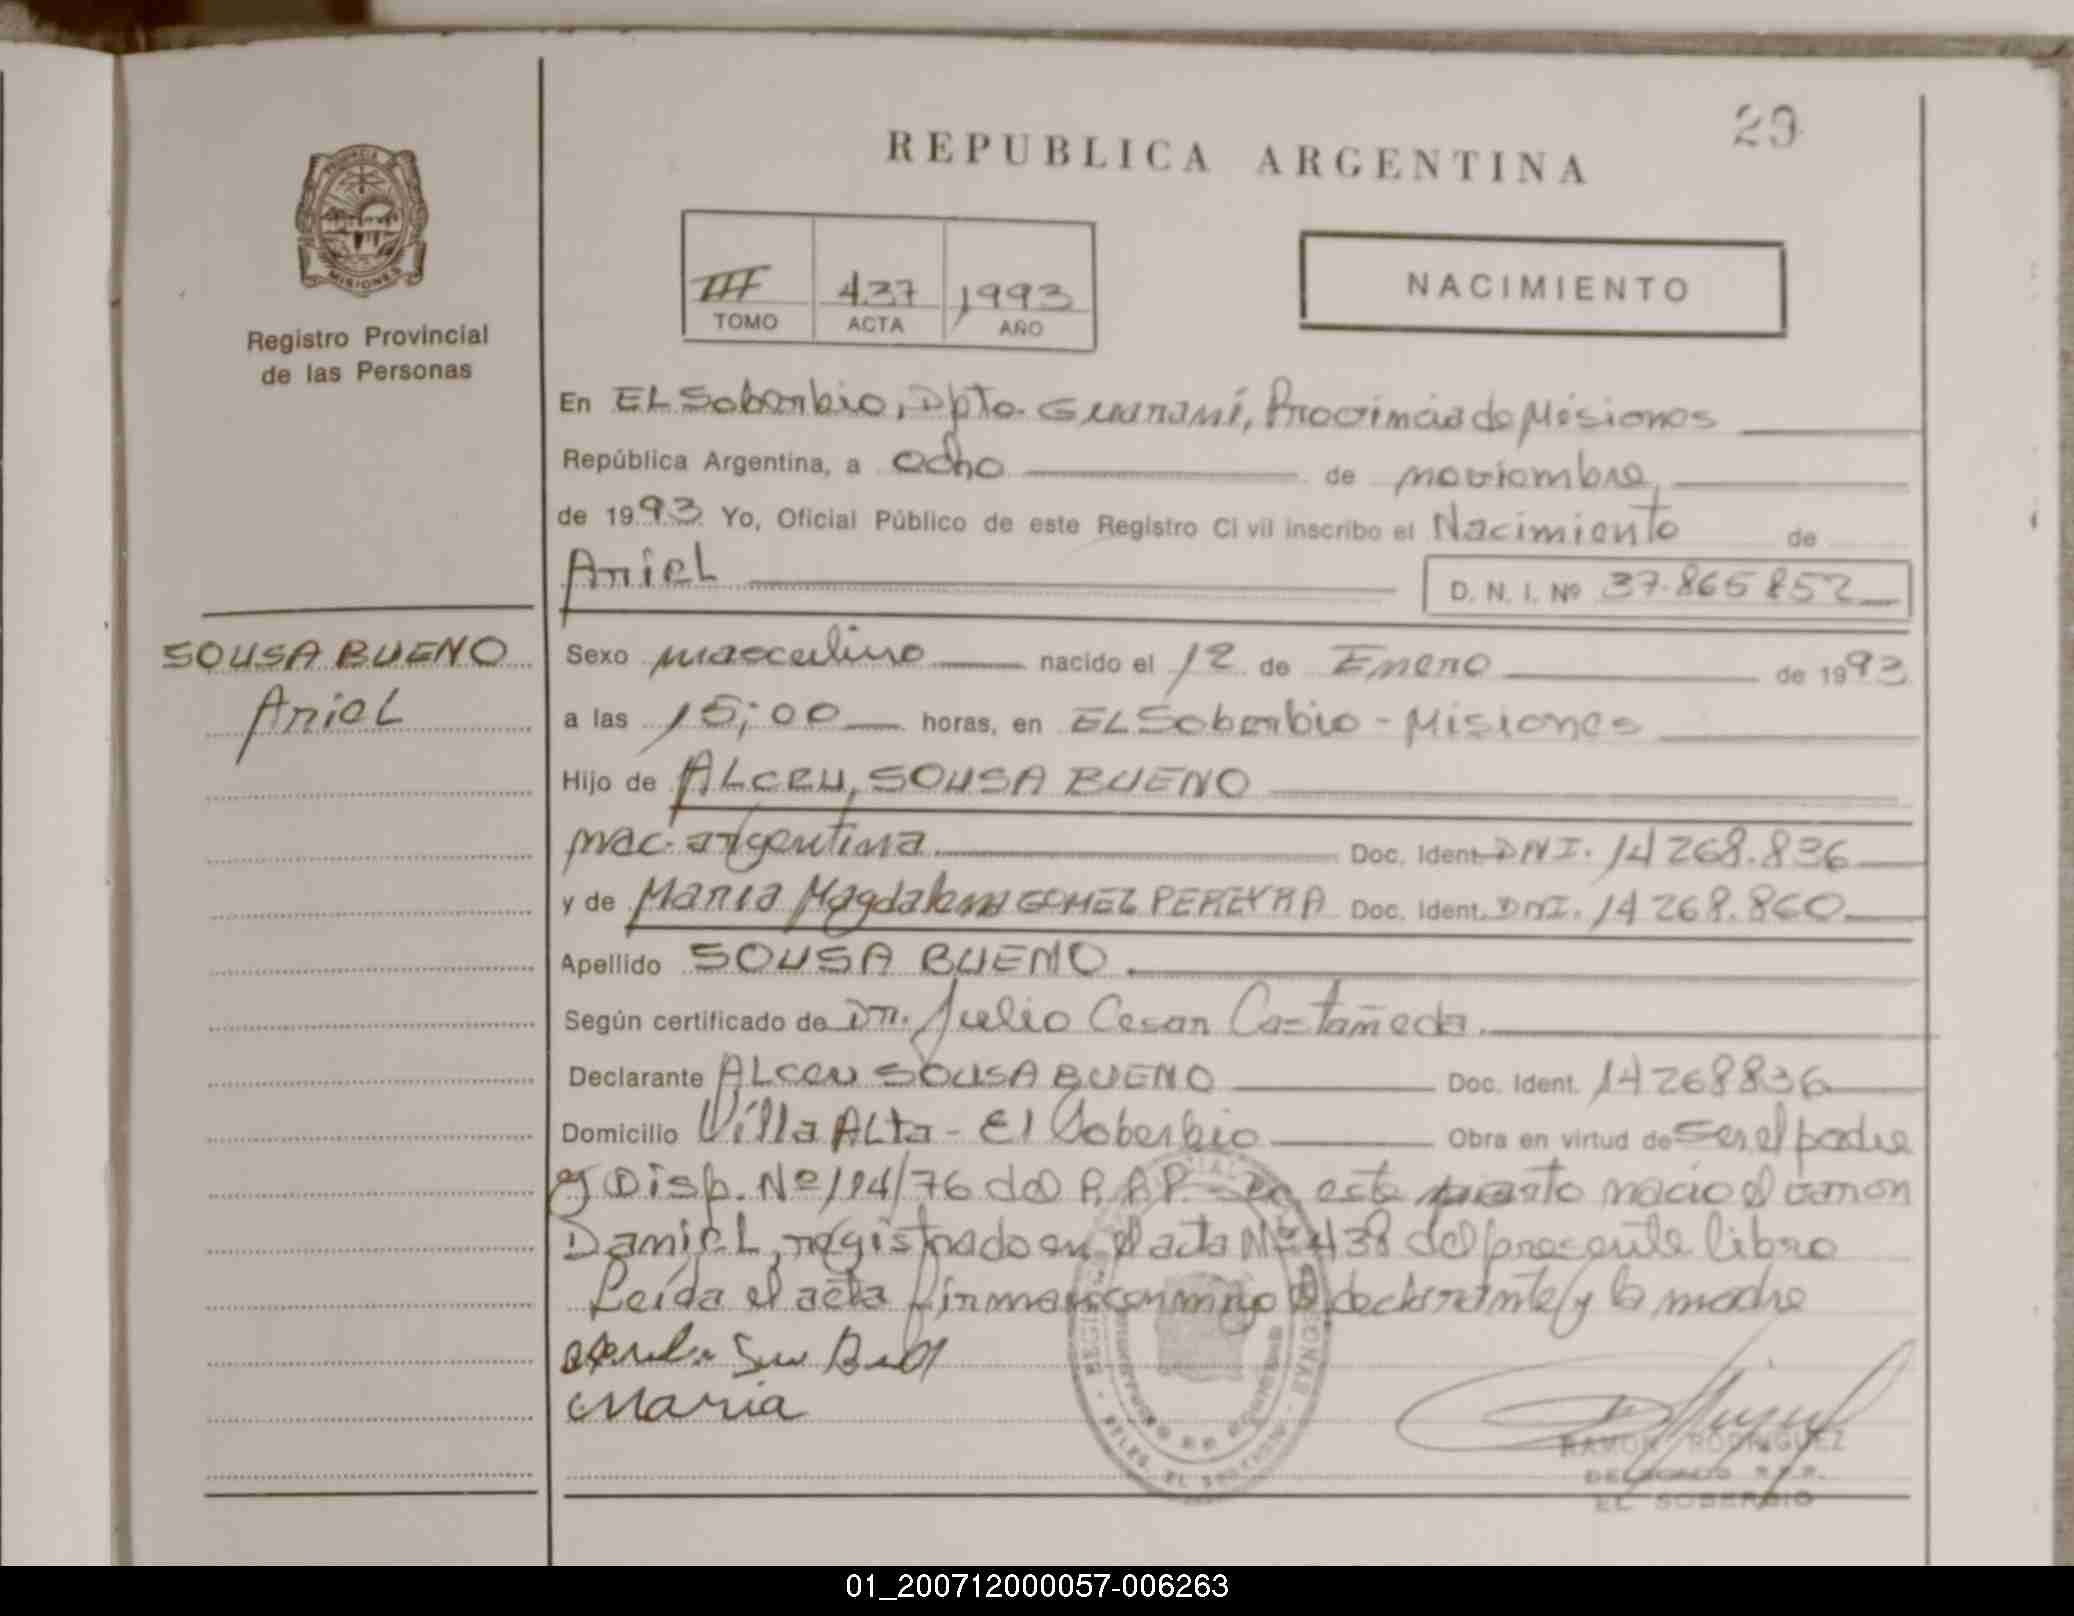 29
REPUBLICA ARGENTINA
PROVINCIA DE
MISIONES
Registro Provincial
de las Personas
III 437 1993
TOMO ACTA AÑO
NACIMIENTO
En EL Soberbio, Dpto. Guaraní, Provincia de Misiones
República Argentina, a ocho de noviembre,
de 1993 Yo, Oficial Público de este Registro Civil inscribo el Nacimiento de
Ariel D. N. I. Nº 37.865852
SOUSA BUENO
Ariel
Sexo masculino nacido el 12 de Enero de 1993
a las 15;00 horas, en EL Soberbio - Misiones
Hijo de ALCEU, SOUSA BUENO
nac. argentina Doc. Ident. DNI. 14268.836
y de Maria Magdalena GOMEZ PEREYRA Doc. Ident. DNI. 14268.860
Apellido SOUSA BUENO
Según certificado de Dr. Julio Cesar Castañeda
Declarante ALCEU SOUSA BUENO Doc. Ident. 14268836
Domicilio Villa ALta - El Soberbio Obra en virtud de ser el padre
y Disp. Nº 114/76 del R.P.P. - En este parto nacio el varon
Daniel, registrado en el acta Nº 438 del presente libro
Leída el acta firman conmigo el declarante y la madre
Maria
RAMON RODRIGUEZ
DELEGADO R.P.P.
EL SOBERBIO
01_200712000057-006263